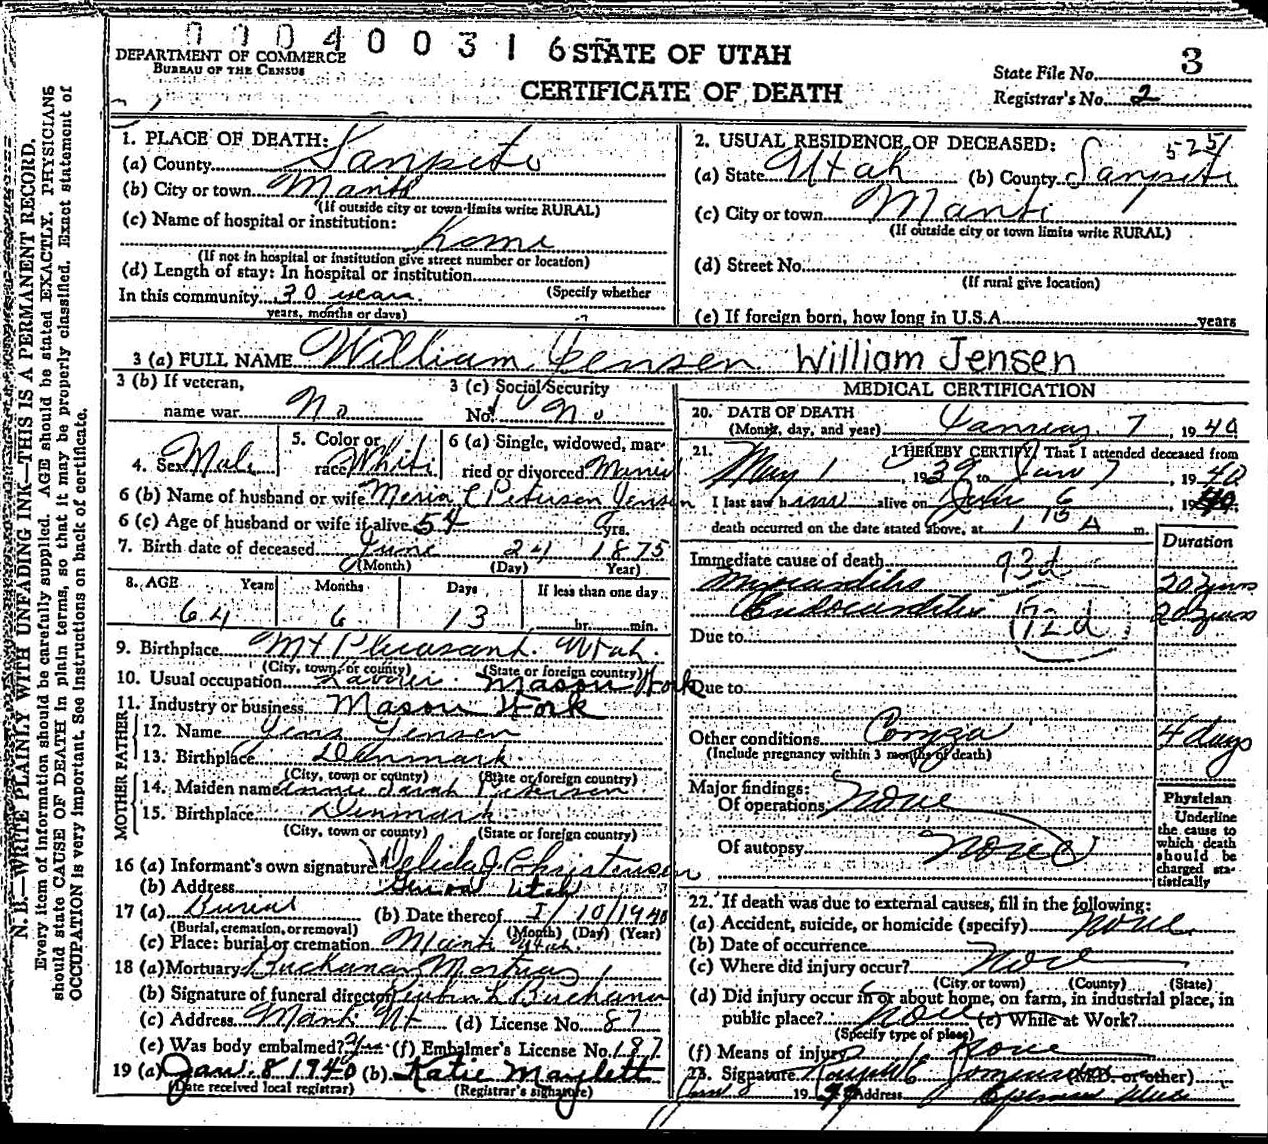 000400316
DEPARTMENT OF COMMERCE
BUREAU OF THE CENSUS
STATE OF UTAH
CERTIFICATE OF DEATH
3
State File No.
Registrar's No. 2
N. B.—WRITE PLAINLY WITH UNFADING INK—THIS IS A PERMANENT RECORD.
Every item of information should be carefully supplied. AGE should be stated EXACTLY. PHYSICIANS
should state CAUSE OF DEATH in plain terms, so that it may be properly classified. Exact statement of
OCCUPATION is very important. See instructions on back of certificate.
1. PLACE OF DEATH:
(a) County Sanpete
(b) City or town Manti
(If outside city or town limits write RURAL)
(c) Name of hospital or institution:
home
(If not in hospital or institution give street number or location)
(d) Length of stay: In hospital or institution
In this community 30 years (Specify whether
years, months or days)
2. USUAL RESIDENCE OF DECEASED: 525
(a) State Utah (b) County Sanpete
(c) City or town Manti
(If outside city or town limits write RURAL)
(d) Street No.
(If rural give location)
(e) If foreign born, how long in U.S.A. years
3 (a) FULL NAME William Jensen William Jensen
3 (b) If veteran,
name war No
3 (c) Social Security
No. No
4. Sex Male
5. Color or
race White
6 (a) Single, widowed, mar-
ried or divorced Married
6 (b) Name of husband or wife C Petersen Jensen
6 (c) Age of husband or wife if alive 54 yrs.
7. Birth date of deceased June 24 1875
(Month) (Day) Year)
8. AGE Years Months Days If less than one day
64 6 13 hr. min.
9. Birthplace Mt Pleasant. Utah.
(City, town, or county) (State or foreign country)
10. Usual occupation Laborer Mason Work
11. Industry or business Mason Work
FATHER
12. Name Jens Jensen
13. Birthplace Denmark.
(City, town or county) (State or foreign country)
MOTHER
14. Maiden name Annie Sarah Petersen
15. Birthplace Denmark
(City, town or county) (State or foreign country)
16 (a) Informant's own signature J. Christensen
(b) Address Utah
17 (a) Burial (b) Date thereof 1/10/1940
(Burial, cremation, or removal) (Month) (Day) (Year)
(c) Place: burial or cremation Manti Utah.
18 (a) Mortuary Buchanan Mortuary
(b) Signature of funeral director L Buchanan
(c) Address Manti Ut (d) License No. 87
(e) Was body embalmed? Yes (f) Embalmer's License No. 187
19 (a) Jan. 8 1940 (b) Katie Maylett
(Date received local registrar) (Registrar's signature)
MEDICAL CERTIFICATION
20. DATE OF DEATH
(Month, day, and year) January 7, 1940
21. I HEREBY CERTIFY, That I attended deceased from
May 1, 1939 to Jan 7, 1940
I last saw him alive on 6, 1940
death occurred on the date stated above, at 1 15 A m.
Duration
Immediate cause of death 93d
Myocarditis 20 years
Endocarditis 20 years
Due to (72d)
Due to
Other conditions Coryza 4 days
(Include pregnancy within 3 months of death)
Major findings:
Of operations None
Of autopsy None
Physician
Underline
the cause to
which death
should be
charged sta-
tistically
22. If death was due to external causes, fill in the following:
(a) Accident, suicide, or homicide (specify) None.
(b) Date of occurrence
(c) Where did injury occur? None
(City or town) (County) (State)
(d) Did injury occur in or about home, on farm, in industrial place, in
public place? None (e) While at Work?
(Specify type of place)
(f) Means of injury None
23. Signature (M.D. or other)
19 Address